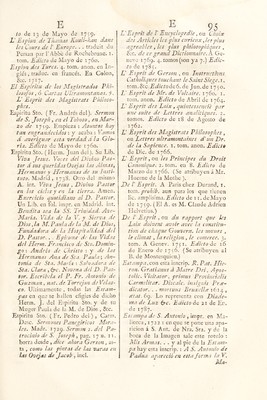 E
to de 13 de Mayo de 1759.
L' Espion de Thamas Kouli-kan dans
les Cours de l' Europe... traduit du
Persan par l'Abbe de Rochebrune. 1.
tom. Edicto de Mayo de 1760.
Espion des Turcs. 2. tom. anon. en In-
glés, traduc. en francés. En Colon.
&c. 1717.
El Espiritu de los Magistrados Philo-
sofos, ó Cartas Ultramontanas. 5.
L' Esprit des Magistrats Philoso-
phes.
Espiritu Sto. (Fr. Andrés del). Sermon
de S. Joseph, en el Folson, en Mar-
zo de 1739. Empieza: Assunto hay
Edicto de Mayo de 1760.
Espiritu Sto. (Herm. Juan del). Su Lib.
Viva Jesus. Voces del Divino Pas-
tor à sus queridas Ovejas las almas,
Hermanos y Hermanas de su Insti-
tuto. Madrid, 1738. Otro del mismo
en los cielos y en la tierra. Amen.
Exercicio quotidiano à D. Pastor.
Maria. Vida de la V. y Sierva de
Dios, la M. Paula de la M. de Dios,
Fundadora de la Hospitalidad del
D. Pastor... Compendio de las Vidas
del Herm. Francisco de Sto. Domin-
go: Andrés de Christo : y de las
Hermanas Ana de San Pablo, An-
tonia de Sta. Maria : Salvadora de
Sta. Clara, &c. Novena del D. Pas-
tor. Escribióla el P. Fr. Antonio de
Guzman, nat. de Torrejon de Velas-
co. Ultimamente, todas las Estam-
pas en que se hallen efigies de dicho
Herm. J. del Espiritu Sto. y de su
Mugar Paula de la M. de Dios, &c.
Espiritu Sto. (Fr. Pedro del), Carm.
Desc. Sermones Panegiricos Mora-
les. Madr. 1719. Sermon 1. del Pa-
trocinio de S. Joseph, pag. 17. n. 11.
hasta donde, dice ahora Gerson, au-
tor, como las pintas de las varas en
las Ovejas de Jacob, incl.
E
95
L'Esprit de l' Encyclopedie, ou Choix
des Articles les plus curieux, les plus
agréables, les plus philosophiques,
&c. de ce grand Dictionaire. à Ge-
neve 1769. 4. tomos (son ya 7.) Edic-
to de 1781.
L' Esprit de Gerson, ou Instructions
Catholiques touchant le Saint Siege. 1.
tom. 8vo. Edicto de 6. de Jun. de 1750.
L' Esprit de Mr. de Voltaire. 1760. 1.
tom. anon. Edicto de Abril de 1764.
L' Esprit des Loix, quintessencié par
une suite de Lettres analitiques. 2.
tom. Edicto de 18 de Agosto de
1762.
L' Esprit des Magistrats Philosophes,
ou Lettres ultramontaines d' un Dr.
de la Sapience. 1. tom. anon. Edicto
de Dic. de 1766.
L' Esprit, ou les Principes du Droit
Canonique. 1. tom. 8. Edicto de 24.
Marzo de 1766. (Se atribuyen à Mr.
Huerne de la Mothe).
De l' Esprit. A Paris chez Durand. 1.
tom. prohib. aun para los que tienen
lic. amplisima. Edicto de 11. de Mayo
de 1759. (El A. es M. Claude Adrien
Helvetius.)
De l'Esprit, ou du rapport que les
Loix doivent avoir avec la constitu-
tion de chaque Gouvern. les mœurs,
le climat, la religion, le commerce. 2.
tom. A Genev. 1751. Edicto de 18
de Enero de 1756. (Se atribuyen al
B. de Montesquiou.)
Estampa con esta inscrip. R. Pat. Hie-
ron. Gratianus à Matre Dei, Apos-
tolic. Visitator, primus Provincialis
Carmelitar. Discalc. insignis Præ-
dicator... mortuus Bruxellæ 1614.
ætat 69. Lo representa con Diade-
ma de Luz &c. Edicto de 21 de En.
de 1787.
Estampa de S. Antonio, impr. en Ma-
drid, 1752 : en que se pone una apari-
cion à S. Ant. de Nra. Sra. y de la
boca de la Imagen sale este rotulo :
Mis Armas. . . . y al pie de la Estam-
pa hay esta inscrip. : A S. Antonio de
Padua apareció en esta forma la V.
Ma-